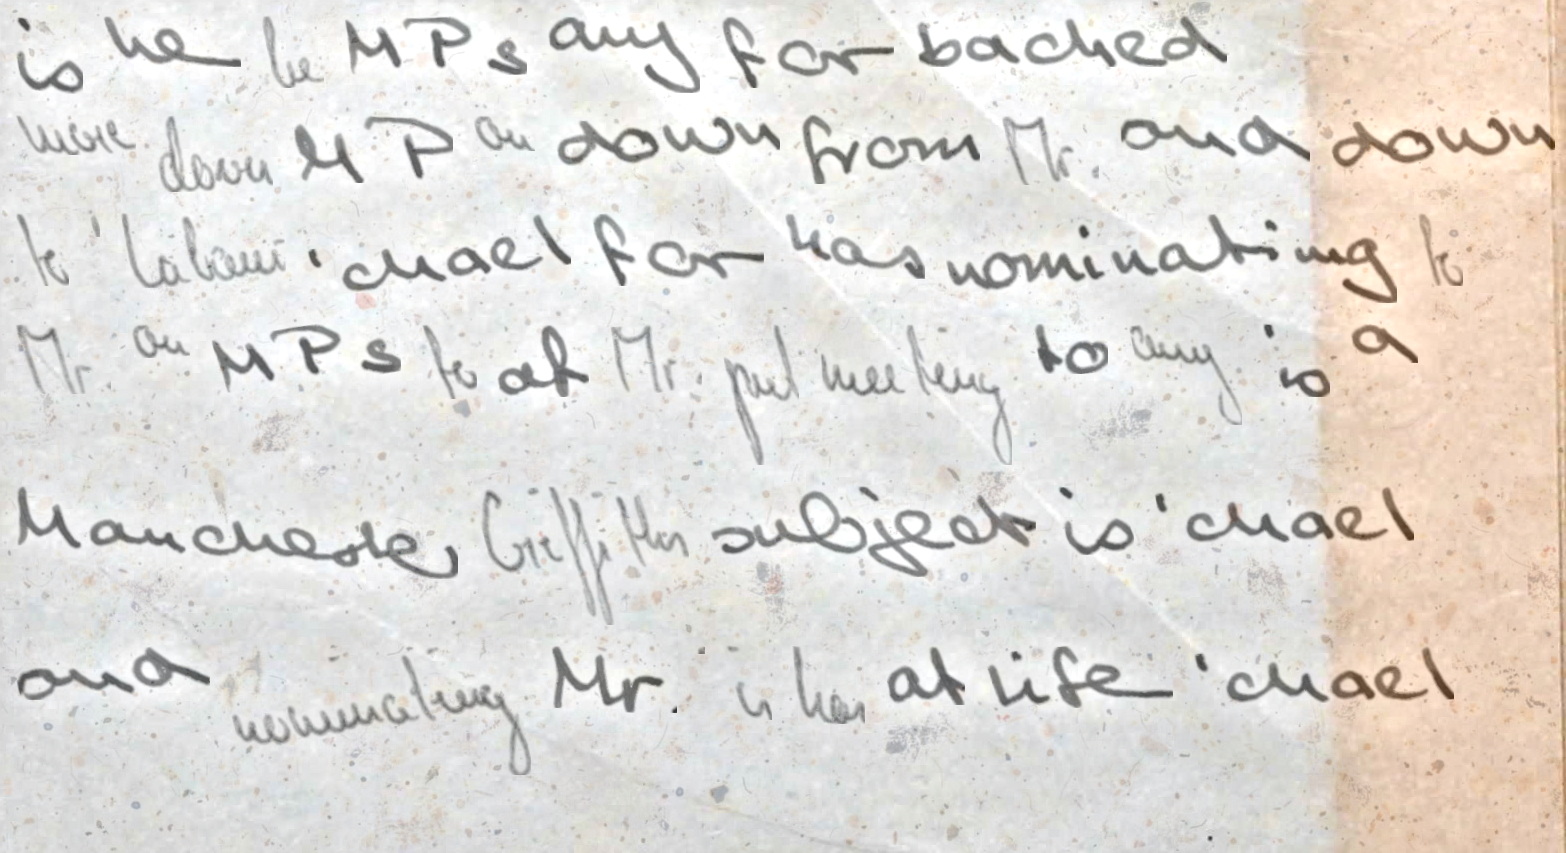 is he be MPs any for backed
more down MP on down from Mr. and down
to 'Labour 'chael for has nominating to
Mr. on MPs to at Mr. put meeting to any is a
Manchester, Griffiths subject is 'chael
and nominating Mr. is has at life 'chael